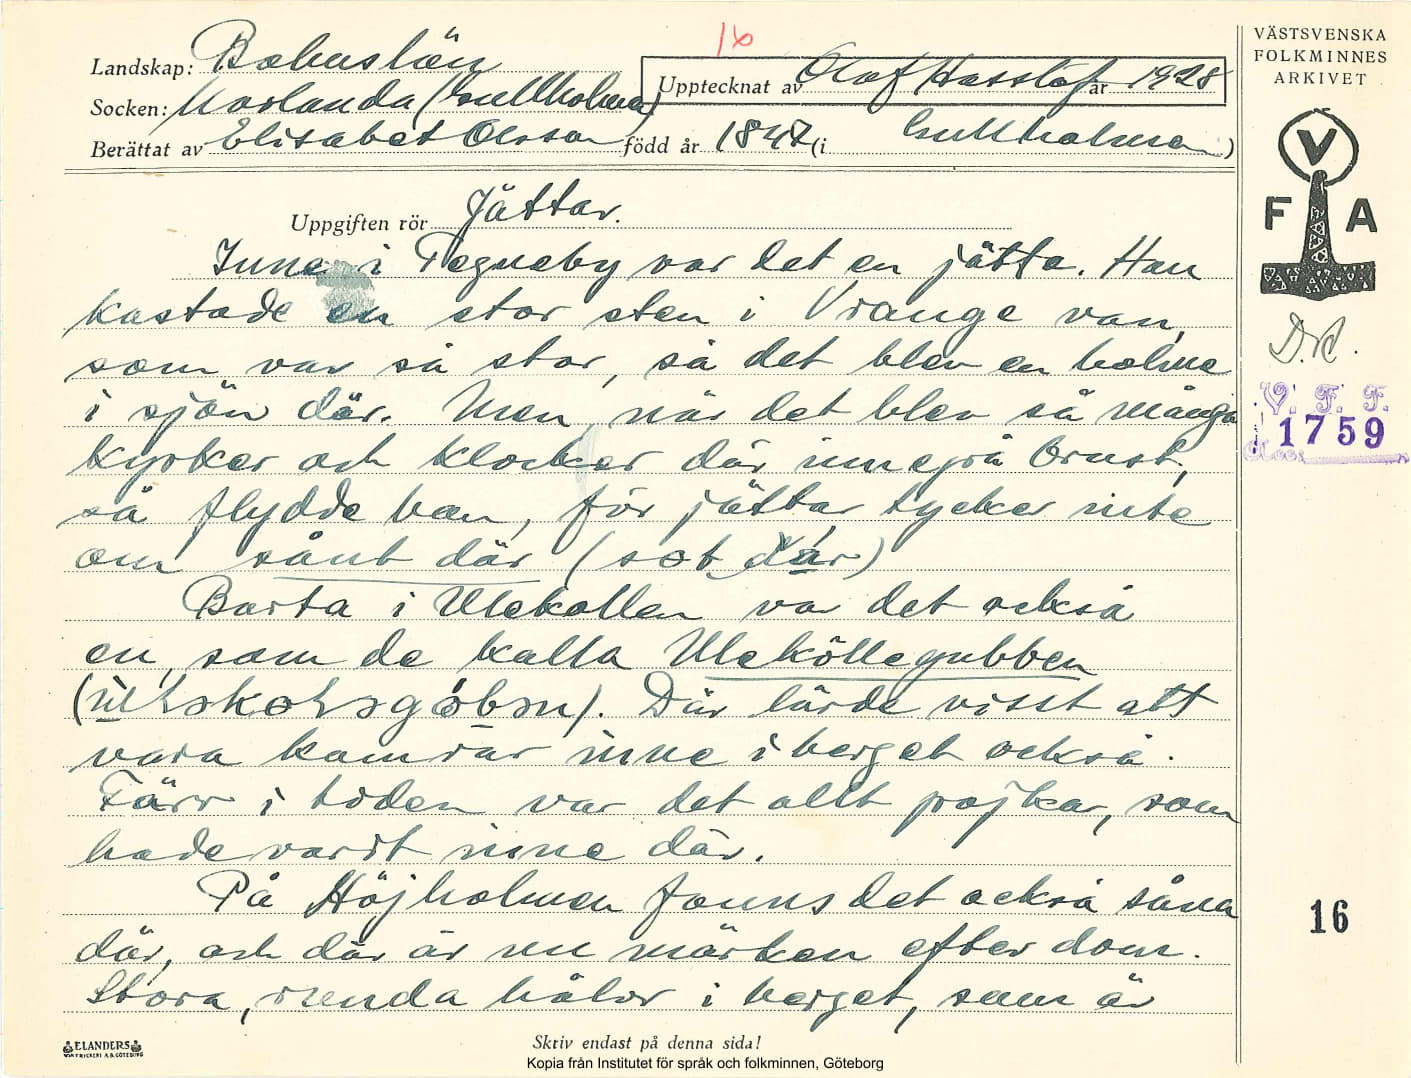 16
VÄSTSVENSKA
FOLKMINNES
ARKIVET
Landskap: Bohuslän
Upptecknat av Olof Hasslöf år 1928
Socken: Morlanda (Gullholmen)
Berättat av Elisabet Olsson född år 1847 (i Gullholmen)
V
F A
VÄSTSVENSKA FOLKMINNESARKIVET
Uppgiften rör Jättar.
Inne i Tegneby var det en jätte. Han
kastade en stor sten i Vrange van,
som var så stor, så det blev en holme
i sjön där. Men, när det blev så många
kyrker och klocker där inne på Orust,
så flydde han, för jättar tycker inte
om sånt där (sot där)
Borta i Ulekollen var det också
en, som de kalla Uleköllegubben
Där lärde visst att
vara kamrar inne i berget också.
Färr i tiden var det allt pojkar, som
hade vart inne där.
På Höjholmen fanns det också såna
där, och där är nu märken efter dom.
Stora, runda hålor i berget, som är
V. F. F.
1759
16
ELANDERS
BOKTRYCKERI A.B. GÖTEBORG
Skriv endast på denna sida!
Kopia från Institutet för språk och folkminnen, Göteborg